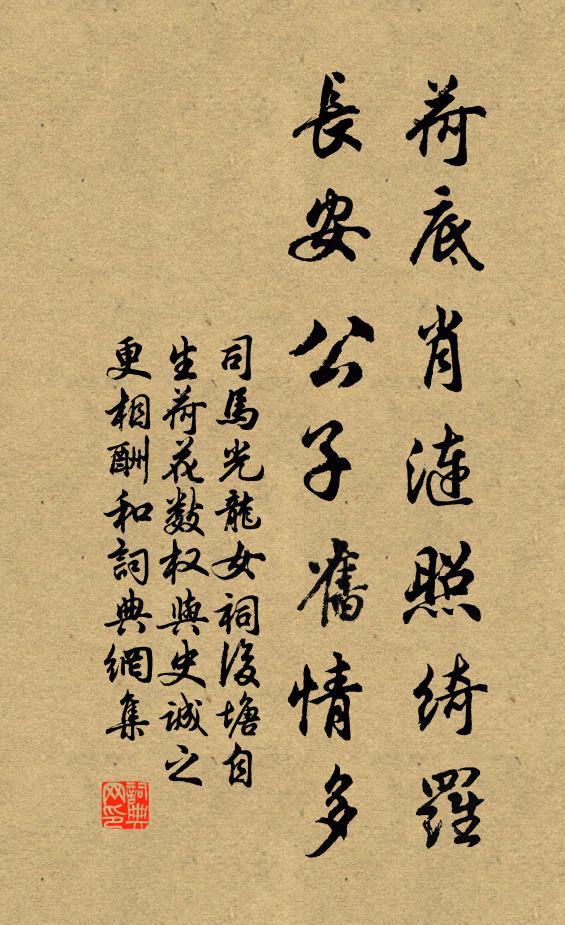 荷底肖漣照綺羅
長安公子舊情多
司馬光龍女祠後塘自
生荷花數权與史誠之
更相酬和詞典網集
詞典
网印